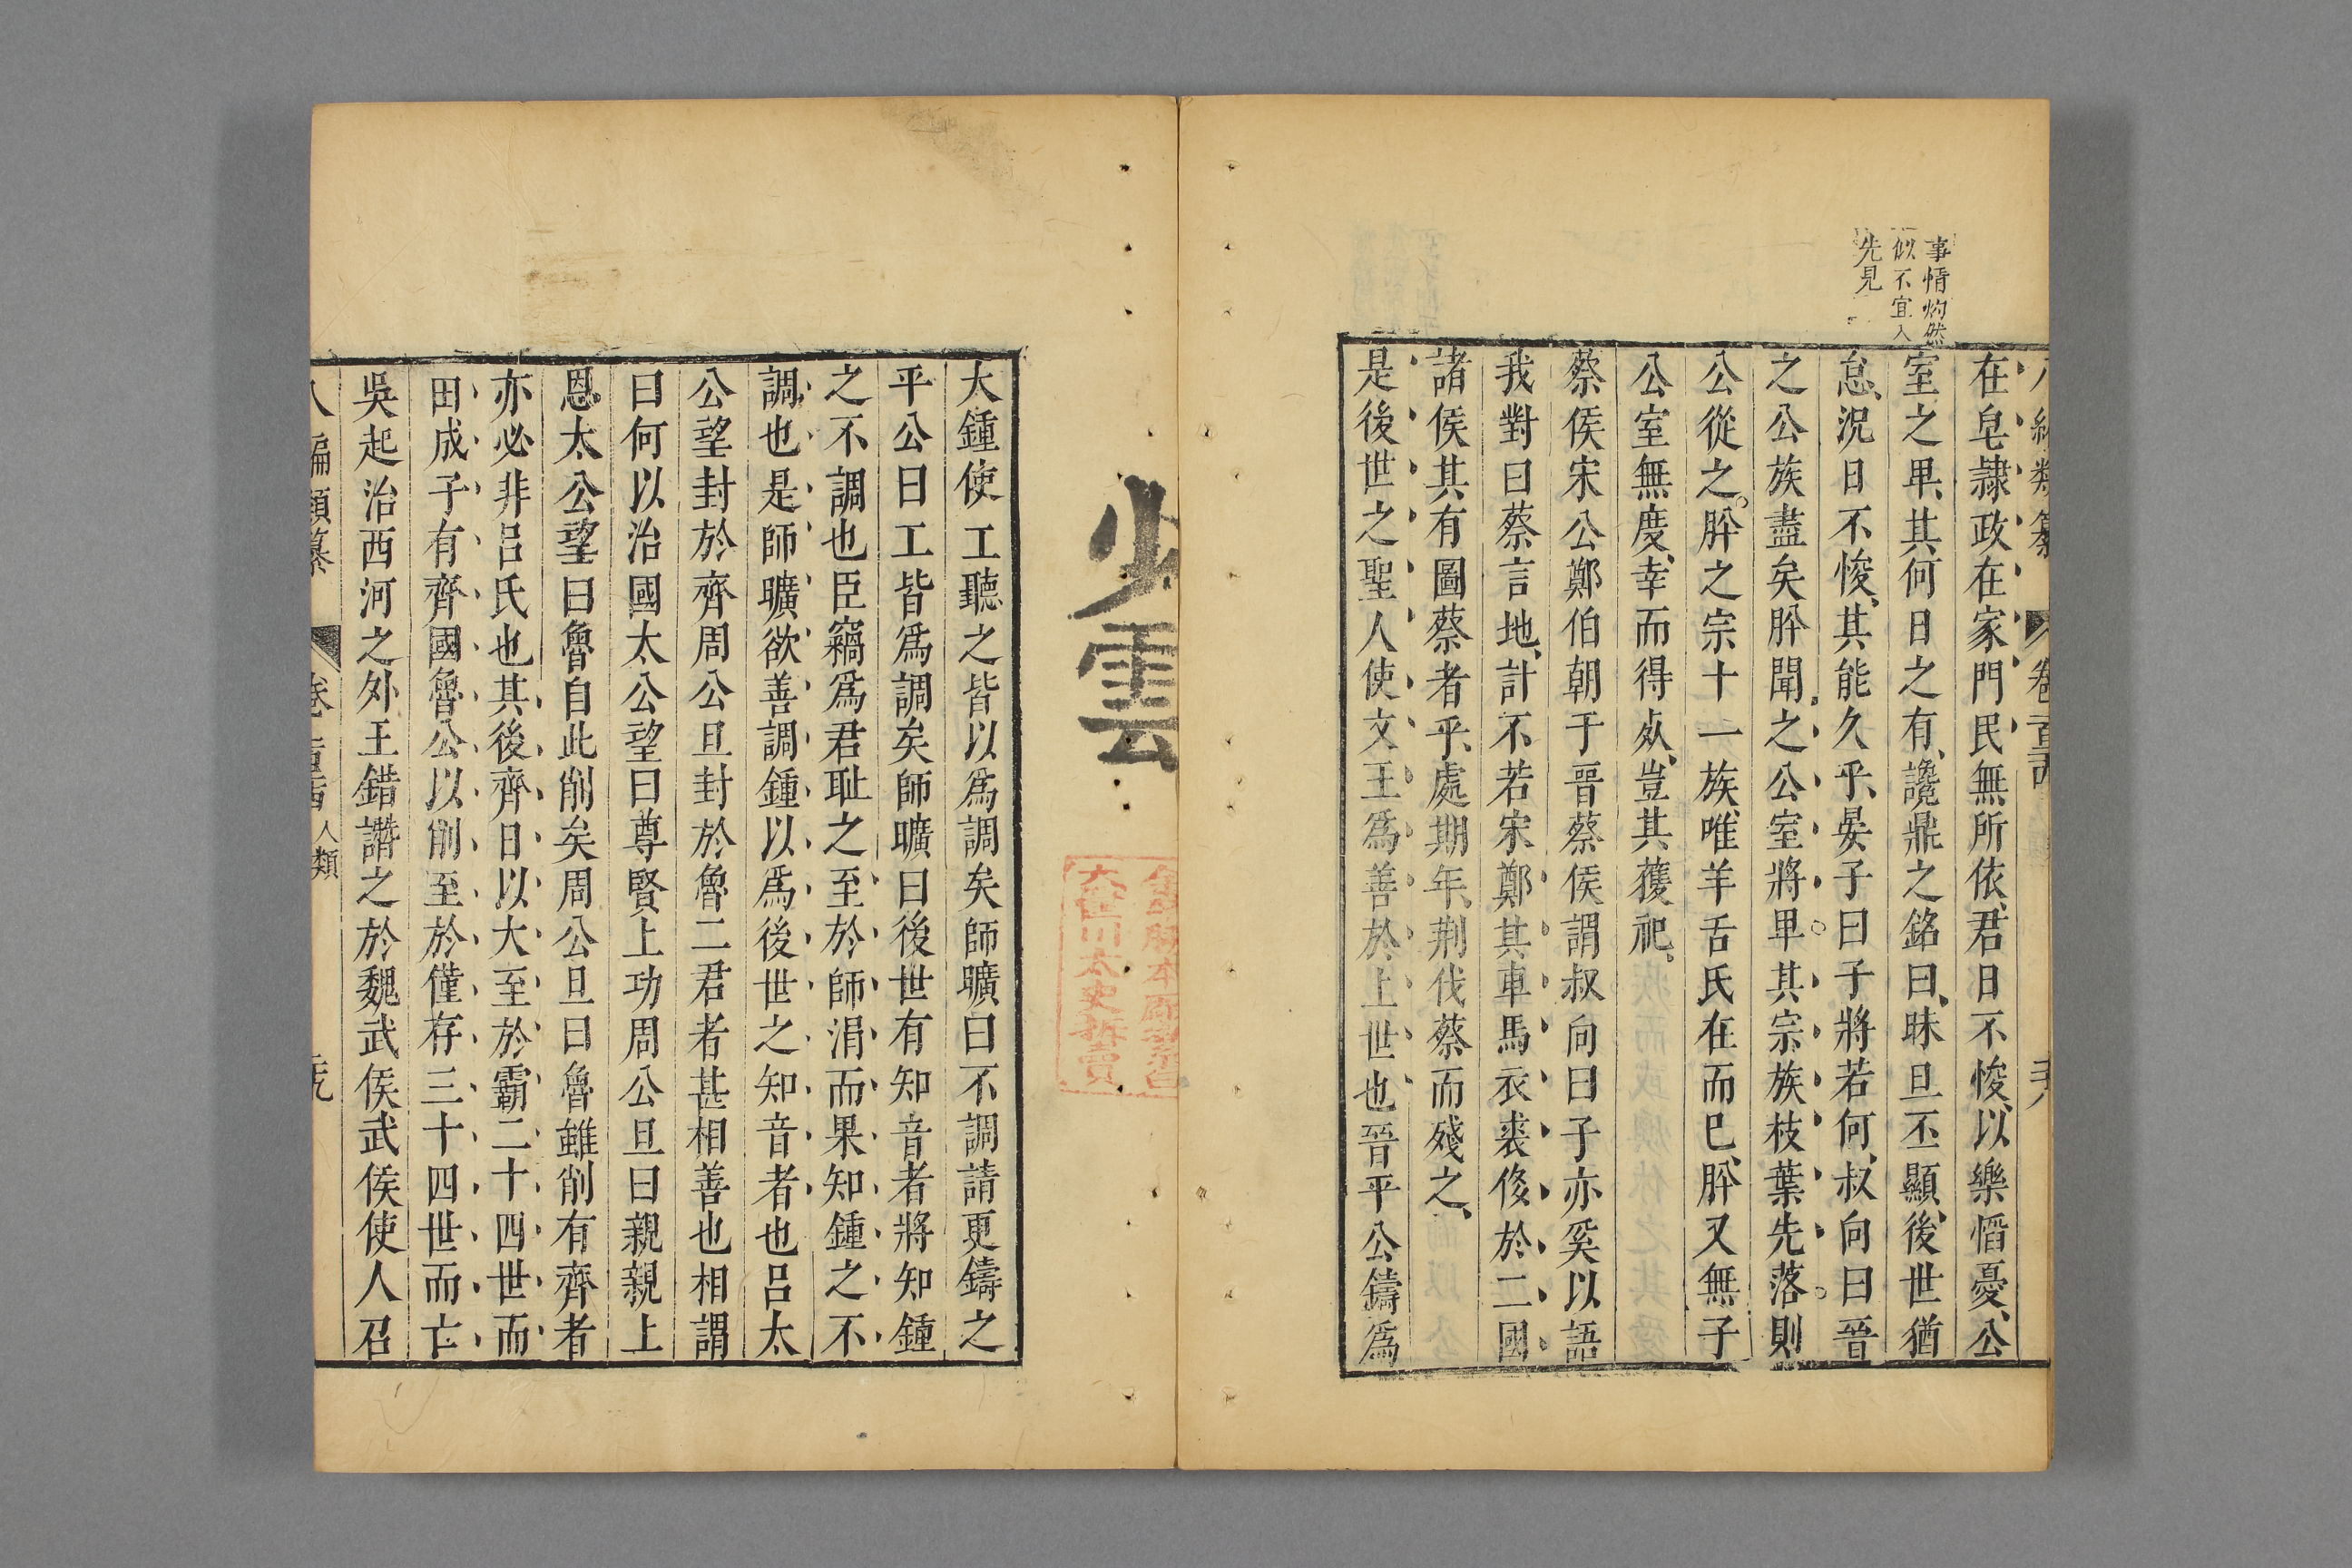 事情灼然
似不宜入
先見
在皂隸政在家門民無所依君日不悛以樂慆憂公
室之卑其何日之有讒鼎之銘曰昧旦丕顯後世猶
怠況日不悛其能久乎晏子曰子將若何叔向曰晉
之公族盡矣肸聞之公室將卑其宗族枝葉先落則
公從之肸之宗十一族唯羊舌氏在而已肸又無子
公室無度幸而得死豈其獲祀
蔡侯宋公鄭伯朝于晋蔡侯謂叔向曰子亦奚以語
我對曰蔡言地計不若宋鄭其車馬衣裘侈於二國
諸侯其有圖蔡者乎處期年荆伐蔡而殘之
是後世之聖人使文王爲善於上世也晉平公鑄爲
少雲
大鍾使工聽之皆以爲調矣師曠曰不調請更鑄之
平公曰工皆爲調矣師曠曰後世有知音者將知鍾
之不調也臣竊爲君耻之至於師涓而果知鍾之不
調也是師曠欲善調鍾以爲後世之知音者也呂太
公望封於齊周公旦封於魯二君者甚相善也相謂
曰何以治國太公望曰尊賢上功周公旦曰親親上
恩太公望曰魯自此削矣周公旦曰魯雖削有齊者
亦必非呂氏也其後齊日以大至於霸二十四世而
田成子有齊國魯公以削至於僅存三十四世而亡
吳起治西河之外王錯譖之於魏武侯武侯使人召
八編類纂 卷 人類